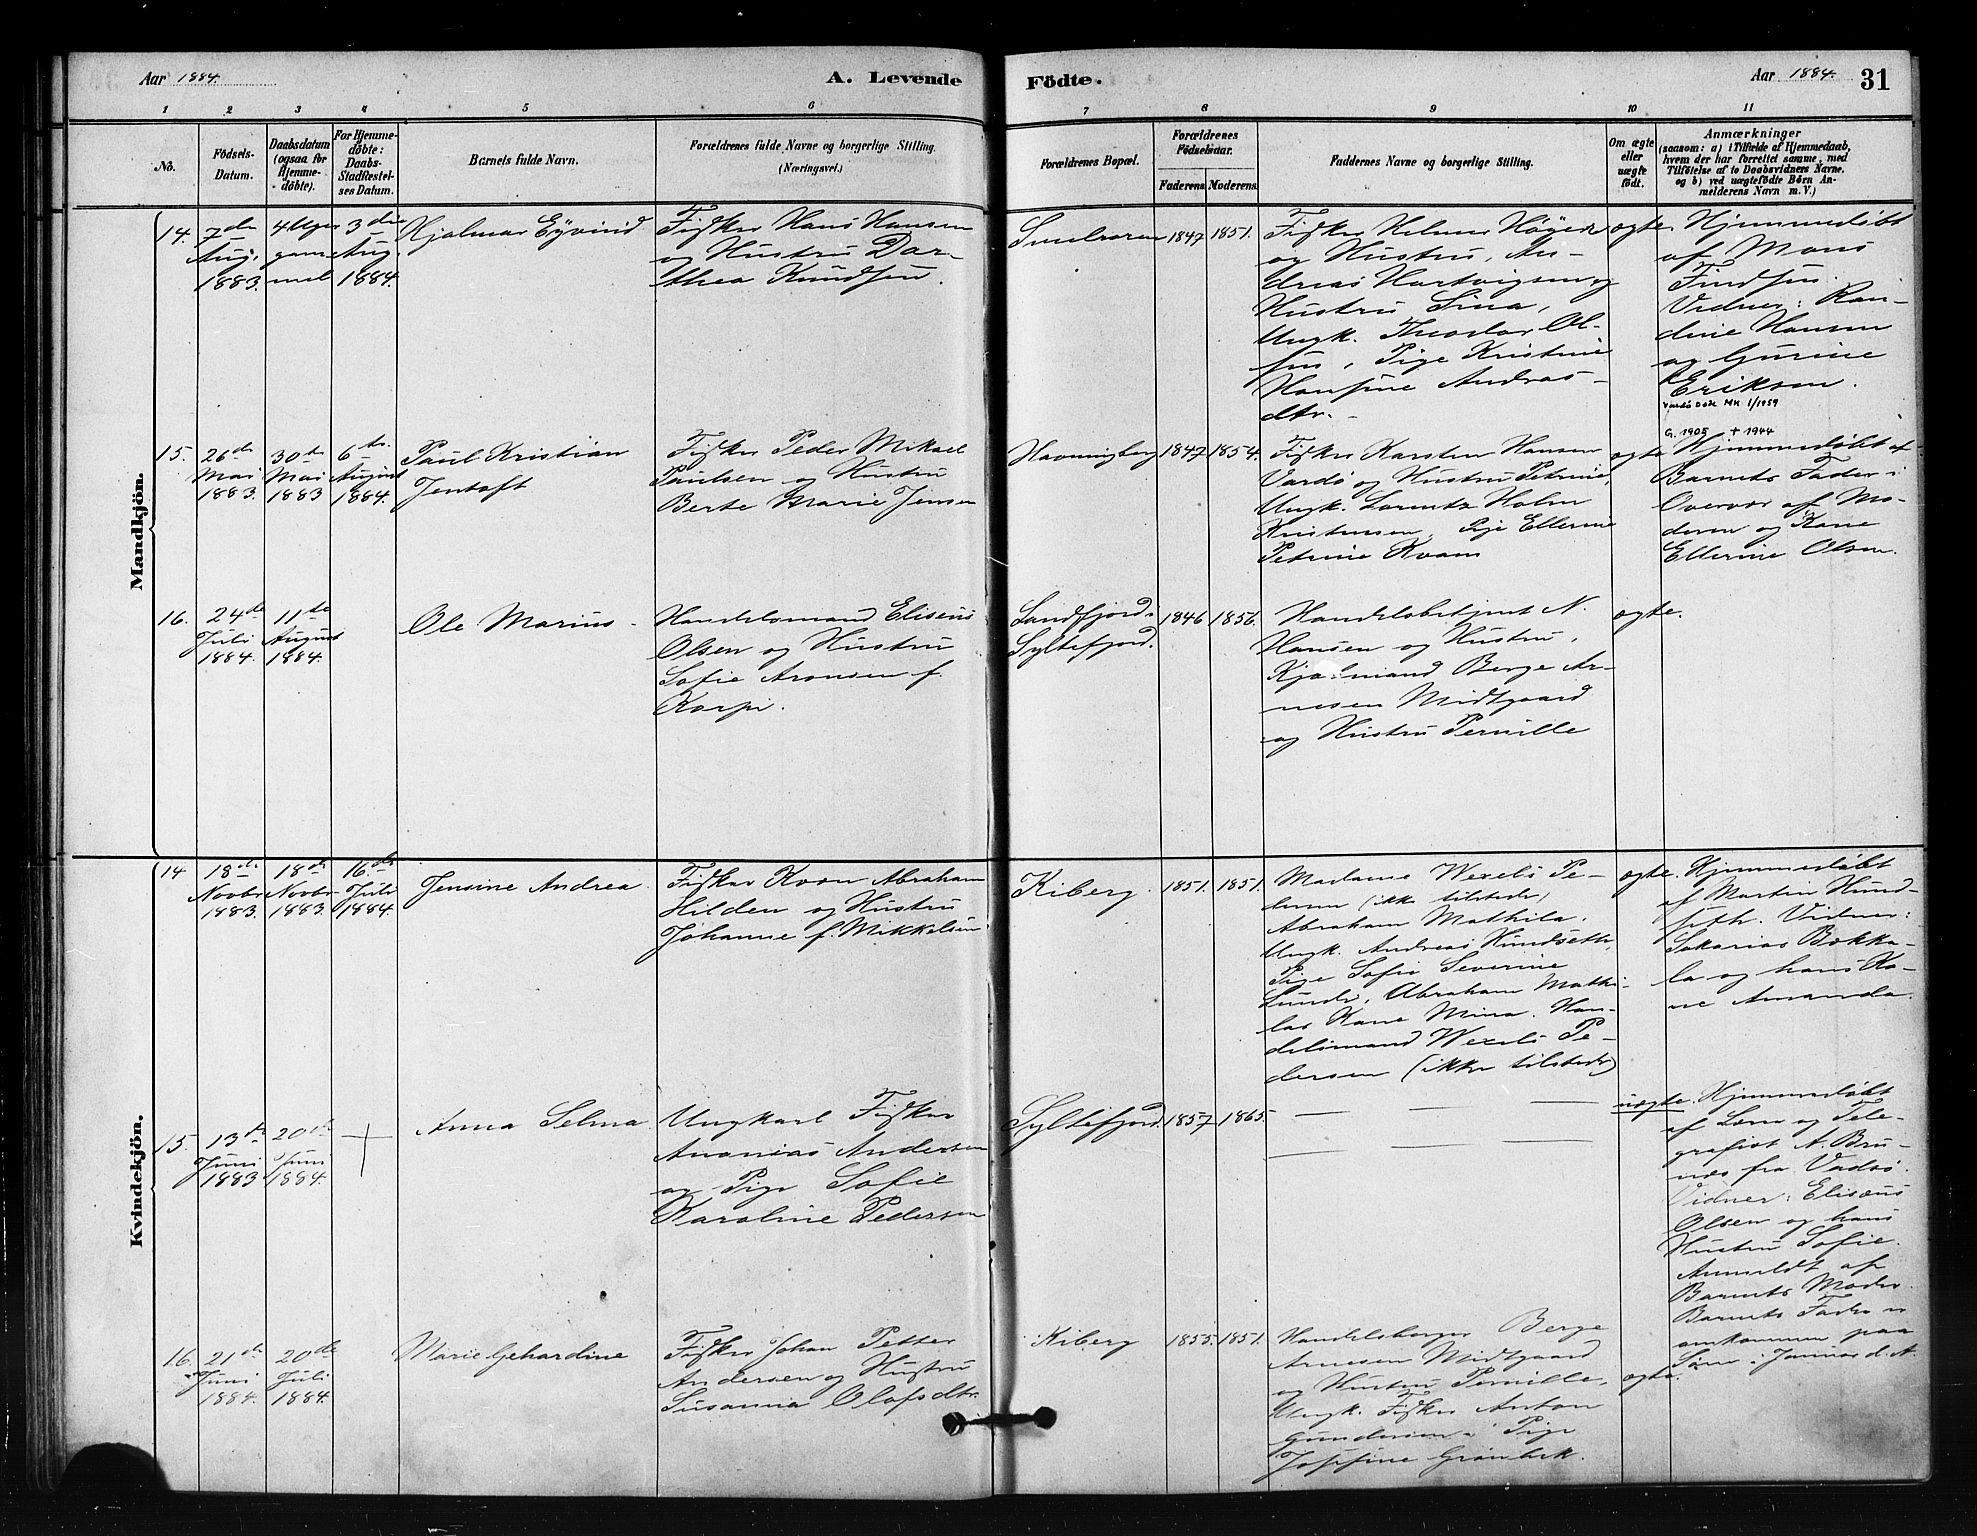 Aar 1884.
A. Levende
Födte.
Aar 1884.
31
1 2 3 4 5 6 7 8 9 10 11
No.
Födsels-
Datum.
Daabsdatum
(ogsaa for
Hjemme-
döbte).
For Hjemme-
döbte:
Daabs-
Stadfæstel-
ses Datum.
Barnets fulde Navn.
Forældrenes fulde Navne og borgerlige Stilling.
(Næringsvei.)
Forældrenes Bopæl.
Forældrenes
Födselsaar.
Faderens. Moderens.
Faddernes Navne og borgerlige Stilling.
Om ægte
eller
uægte
födt.
Anmærkninger
(saasom: a) i Tilfælde af Hjemmedaab,
hvem der har forrettet samme, med
Tilföielse af to Daabsvidners Navne.
og b) ved uægtefödte Börn An-
melderens Navn m. V.)
Mandkjön.
14.
7de
Aug.
1883.
4 Uger
gam-
mel
3die
Aug.
1884.
Hjalmar Eyvind
Fisker Hans Hansen
og Hustru Dor-
thea Knudsen.
Smelroren
1847
1851.
Fisker Helmer Höyer
og Hustru, An-
dreas Hartvigsen og
Hustru Lina,
Ungk. Theodor Ol-
sen, Pige Kristine
Hansine Andreas-
dtr.
ægte.
Hjemmedöbt
af Mons
Findsen
Vidner: Ran-
dine Hansen
og Gurine
Eriksen.
Vardö Död MK 1/1959
15.
26de
Mai
1883.
30te
Mai
1883
6te
August
1884.
Paul Kristian
Jentoft
Fisker Peder Mikael
Paulsen og Hustru
Berte Marie Jensen
Havningberg
1847
1854.
Fisker Karsten Hansen
Vardö og Hustru Petrine,
Ungk. Lorentz Holm
Kristensen, Pige Ellerine
Petrine Kvam
ægte
G. 1905 + 1944
Hjemmedöbt af
Barnets Fader i
Overvær af Mo-
deren og Kone
Ellerine Olsen.
16.
24de
Juli
1884.
11te
August
1884.
Ole Marius
Handelsmand Elisæus
Olsen og Hustru
Sofie Aronsen f.
Korpi.
Sandfjord i
Syltefjord.
1846
1856.
Handelsbetjent N.
Hansen og Hustru,
Berge Ar-
nesen Midtgaard
og Hustru Pernille
ægte.
Kvindekjön.
14
18de
Novbr
1883.
18de
Novbr
1883.
16de
Juli
1884.
Jensine Andrea.
Fisker Kven Abraham
Hilden og Hustru
Johanne f. Mikkelsen
Kiberg.
1851.
1851.
Madame Wexels Pe-
dersen (ikke tilstede)
Abraham Mathila.
Ungk. Andreas Hundseth,
Pige Sofie Severine
Lunde, Abraham Mathi-
las Kone Mina. Han-
delsmand Wexels Pe-
dersen (ikke tilstede)
ægte.
Hjemmedöbt
af Martin Hund-
seth. Vidner:
Sakarias Bækka-
la og hans Ko-
ne Amanda.
15.
13de
Juni
1883
20de
Juni
1884.
Anna Selma
Ungkarl Fisker
Ananias Andersen
og Pige Sofie
Karoline Pedersen
Syltefjord.
1857
1865.
uægte.
Hjemmedöbt
af Lens og Tele-
grafist N. Bru-
næs fra Vadsö.
Vidner: Elisæus
Olsen og hans
Hustru Sofie.
Anmeldt af
Barnets Moder.
Barnets Fader er
omkommen paa
Söen i Januar d. A.
16.
21de
Juni
1884.
20de
Juli
1884.
Marie Gehardine
Fisker Johan Petter
Andersen og Hustru
Susanna Olofsdtr.
Kiberg
1855.
1851.
Handelsborger Berge
Arnesen Midtgaard
og Hustru Pernille,
Ungk. Fisker Anton
Gundersen, Pige
Josefine Grönbek.
ægte.